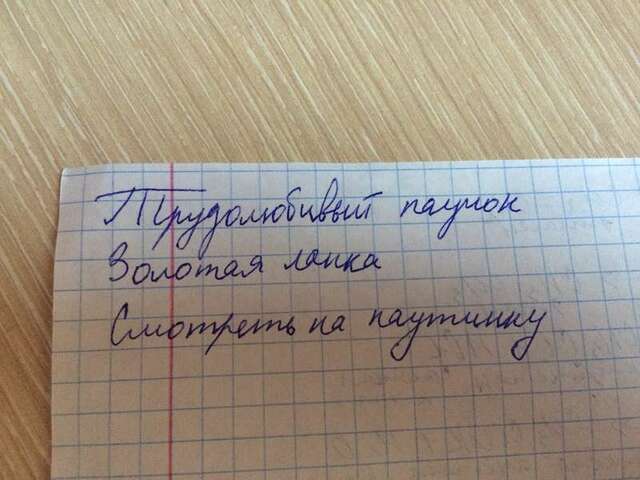 Трудолюбивый паучок
Золотая лапка
Смотреть на паутинку